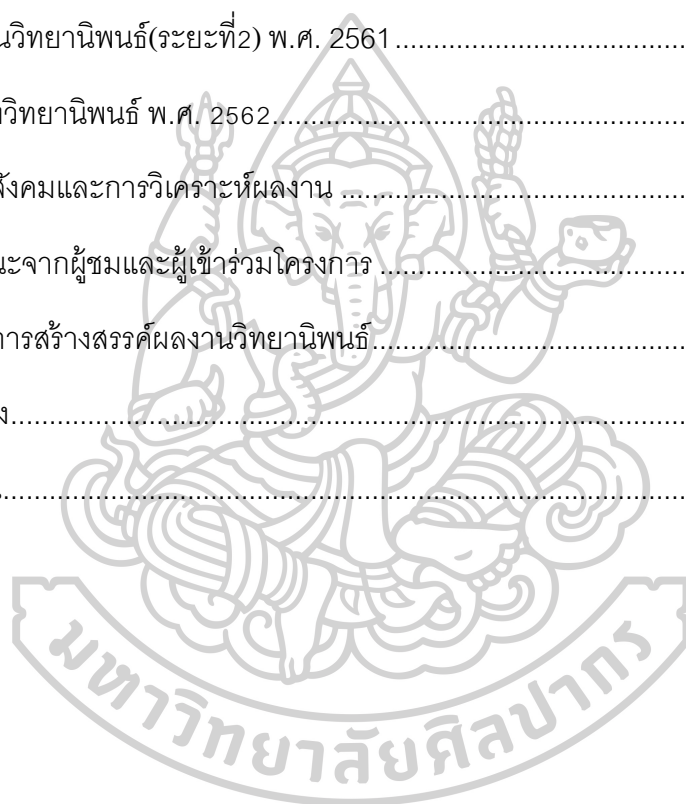 นวิทยานิพนธ์(ระยะที่2) พ.ศ. 2561
วิทยานิพนธ์ พ.ศ. 2562
สังคมและการวิเคราะห์ผลงาน
นะจากผู้ชมและผู้เข้าร่วมโครงการ
การสร้างสรรค์ผลงานวิทยานิพนธ์
ง
มหาวิทยาลัยศิลปากร